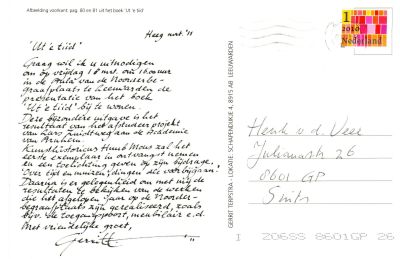 Afbeelding voorkant: pag. 80 en 81 uit het boek 'Ut 'e tiid'
Heeg mrt. '11
'Ut 'e tiid'
Graag wil ik u uitnodigen
om op vrijdag 18 mrt. om 16.00 uur
in de Aula van de Noorderbe-
graafplaats te Leeuwarden de
presentatie van het boek
'Ut 'e tiid' bij te wonen.
Deze bijzondere uitgave is het
resultaat van het afstudeer projekt
van Lars
van Arnhem.
Kunsthistoricus Huub Mous zal het
eerste exemplaar in ontvangst nemen
en een toelichting geven op zijn bijdrage.
'Over tijd en muizen, dingen die voorbijgaan.'
Daarna is er gelegenheid om met mij de
resultaten te bekijken van de werken
die het afgelopen jaar op de Noorder-
begraafplaats zijn gerealiseerd, zoals
bijv. de toegangspoort, meubilair e.d.
Met vriendelijke groet,
Gerrit
GERRIT TERPSTRA - LOKATIE: SCHAPENDIJKJE 4, 8915 AB LEEUWARDEN
1
2010
Nederland
Henk v.d. Veer
Julianastr. 26
8601 GP
Snits
206SS 8601GP 26